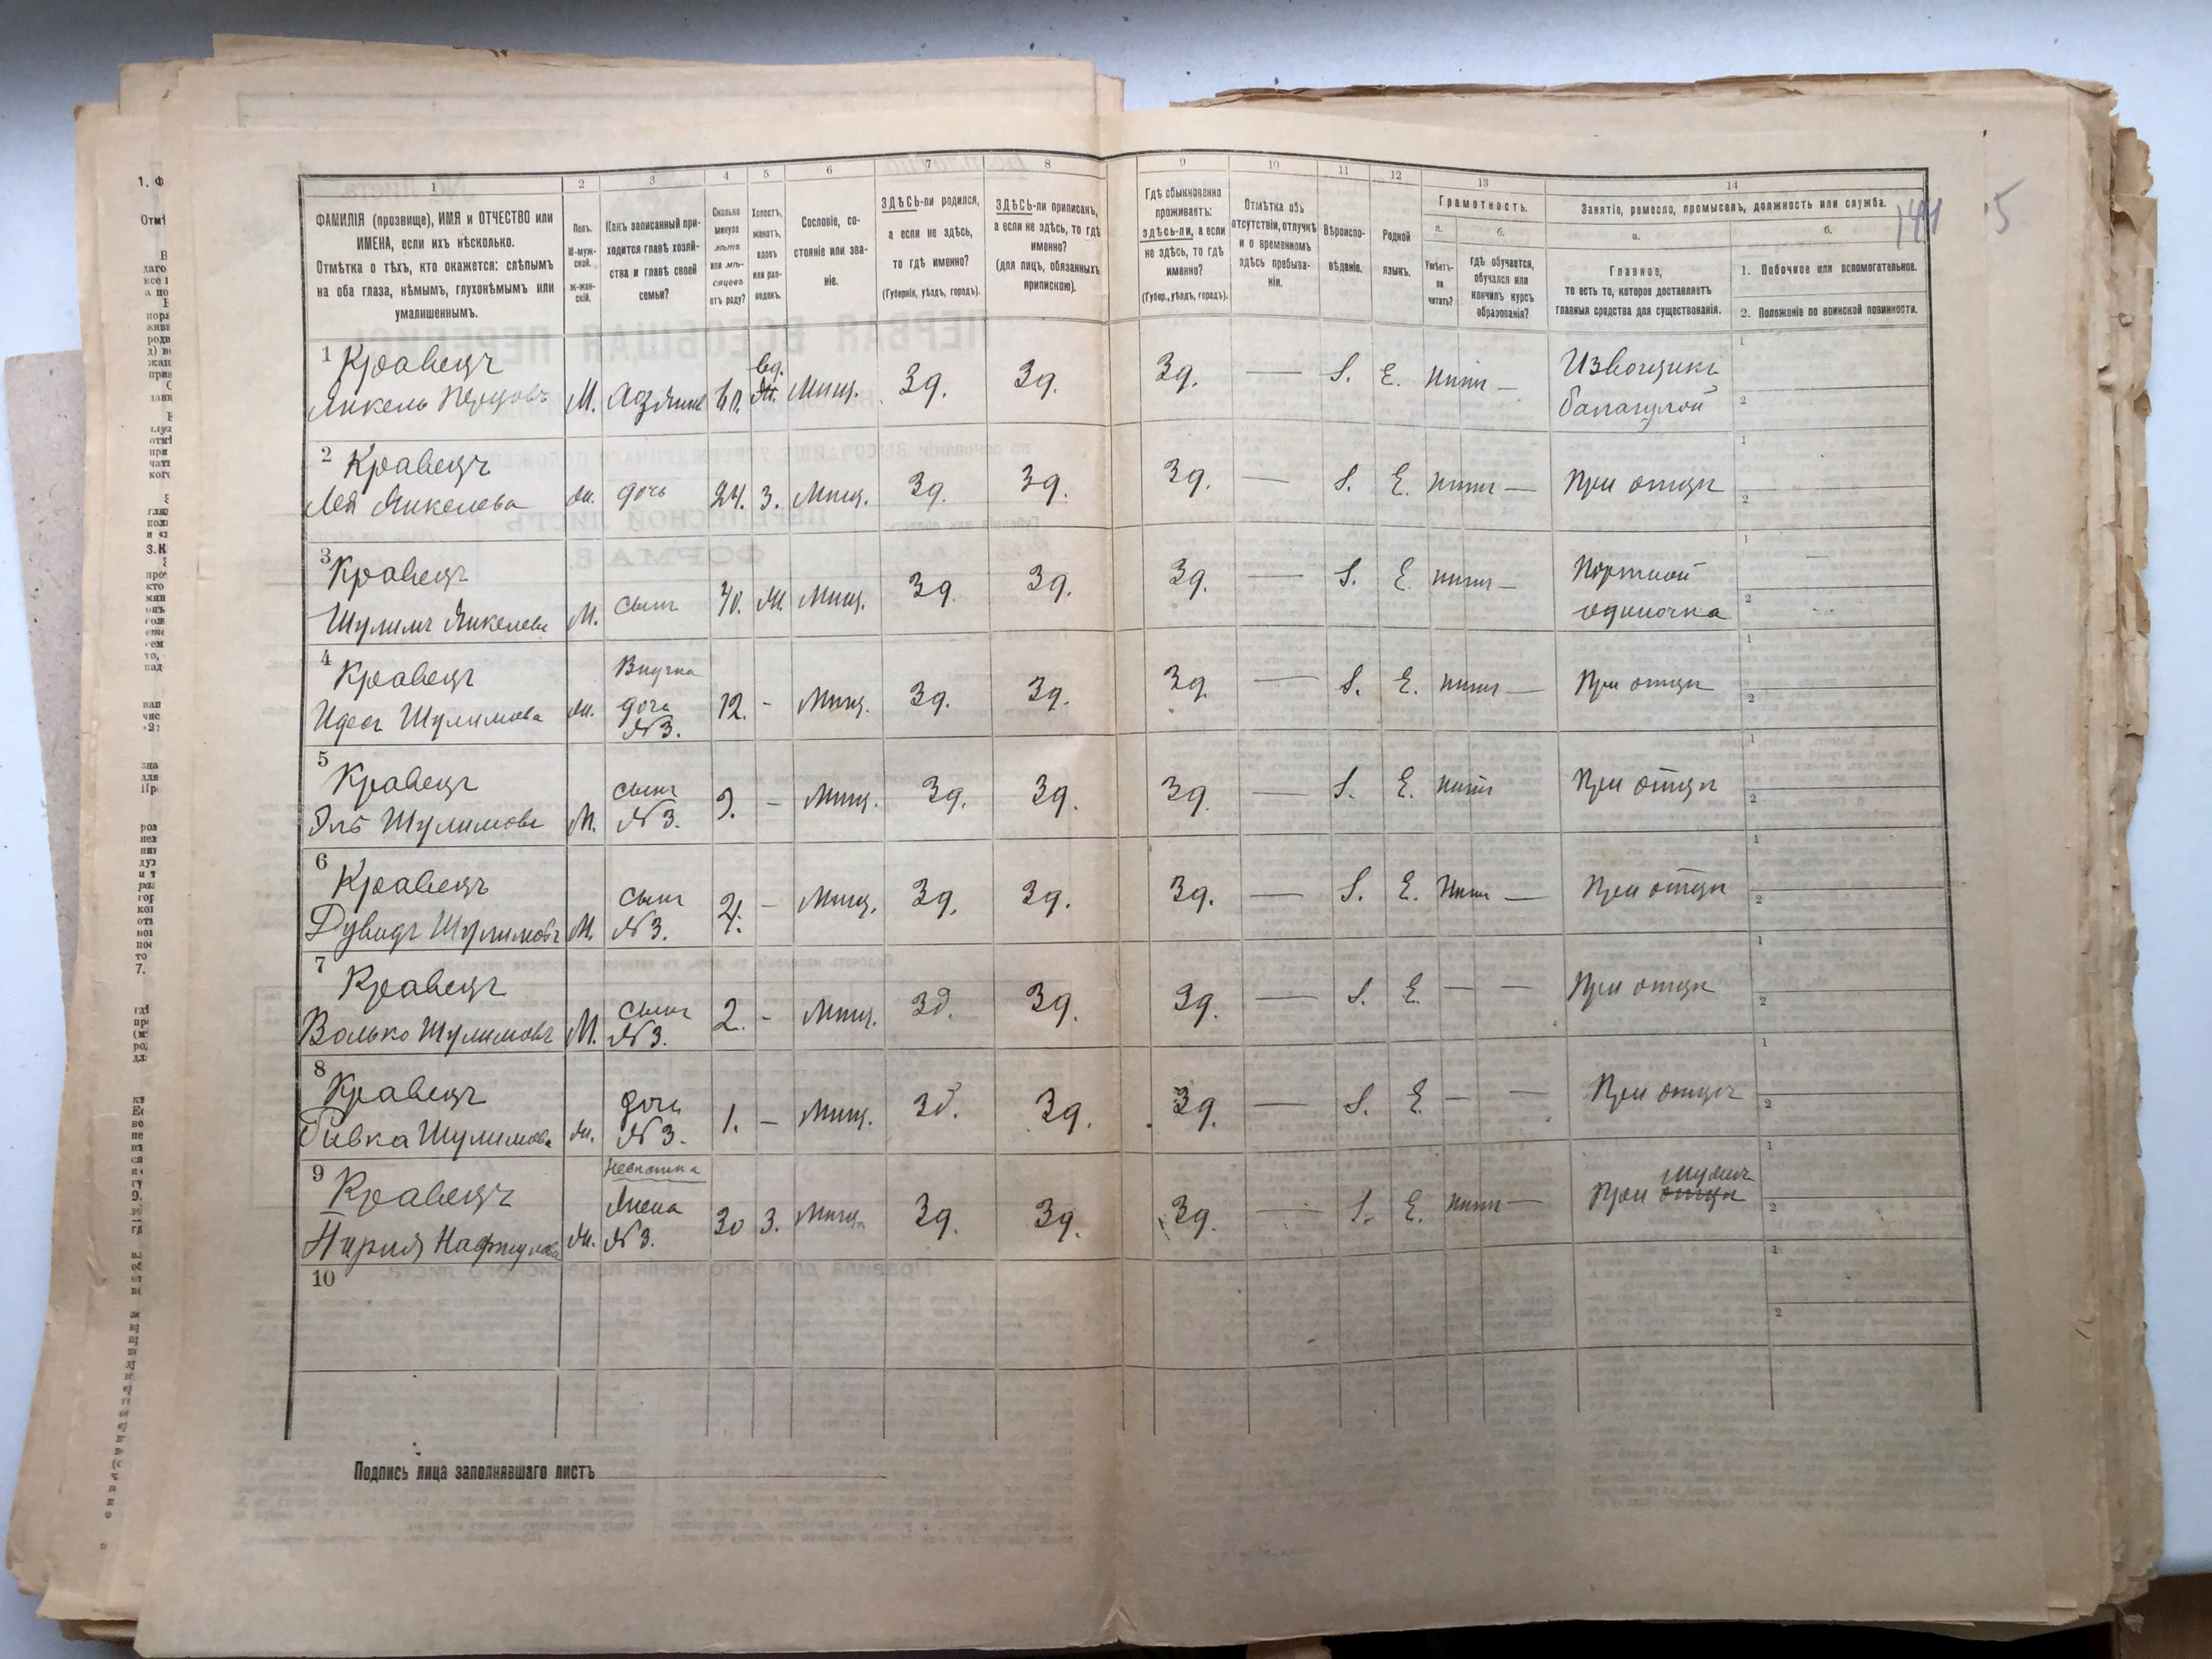 1 2 3 4 5 6 7 8 9 10 11 12 13 14
ФАМИЛІЯ (прозвище), ИМЯ и ОТЧЕСТВО или ИМЕНА, если ихъ нѣсколько.
Отмѣтка о тѣхъ, кто окажется: слѣпымъ на оба глаза, нѣмымъ, глухонѣмымъ или умалишеннымъ.
Полъ. М-мужской. Ж-женскій.
Какъ записанный приходится главѣ хозяйства и главѣ своей семьи?
Сколько минуло лѣтъ или мѣсяцевъ отъ роду?
Холостъ, женатъ, вдовъ или разведенъ.
Сословіе, состояніе или званіе.
ЗДѢСЬ-ли родился, а если не здѣсь, то гдѣ именно?
(Губернія, уѣздъ, городъ).
ЗДѢСЬ-ли приписанъ, а если не здѣсь, то гдѣ именно?
(для лицъ, обязанныхъ припискою).
Гдѣ обыкновенно проживаетъ: здѣсь-ли, а если не здѣсь, то гдѣ именно?
(Губер., уѣздъ, городъ).
Отмѣтка объ отсутствіи, отлучкѣ и о временномъ здѣсь пребываніи.
Вѣроисповѣданіе.
Родной языкъ.
Грамотность.
а. Умѣетъ-ли читать?
б. Гдѣ обучается, обучался или кончилъ курсъ образованія?
Занятіе, ремесло, промыселъ, должность или служба.
а. Главное, то есть то, которое доставляетъ главныя средства для существованія.
б. 1. Побочное или вспомогательное.
2. Положеніе по воинской повинности.
144 5
1 Кравецъ
М. вд. Мѣщ. Зд. Зд. Зд. — І. Е. нѣтъ — Извощикъ
балагулой
2 Кравецъ
Лея Янкелева ж. дочь 24. З. Мѣщ. Зд. Зд. Зд. — І. Е. нѣтъ — При отцѣ
3 Кравецъ
Шулимъ Янкелевъ М. сынъ Ж. Мѣщ. Зд. Зд. Зд. — І. Е. нѣтъ — Портной
одиночка
4 Кравецъ Внучка
Шулимова ж. дочь №3. 12. - Мѣщ. Зд. Зд. Зд. — І. Е. нѣтъ — При отцѣ
5 Кравецъ
Шулимовъ М. сынъ №3. 9. - Мѣщ. Зд. Зд. Зд. — І. Е. нѣтъ При отцѣ
6 Кравецъ
Дувидъ Шулимовъ М. сынъ №3. 4. - Мѣщ. Зд. Зд. Зд. — І. Е. Нѣтъ — При отцѣ
7 Кравецъ
Волько Шулимовъ М. сынъ №3. 2. - Мѣщ. Зд. Зд. Зд. — І. Е. — — При отцѣ
8 Кравецъ
Ривка Шулимова ж. дочь №3. 1. - Мѣщ. Зд. Зд. Зд. — І. Е. — — При отцѣ
9 Кравецъ Невѣстка
ж. Жена №3. 30 З. Мѣщ. Зд. Зд. Зд. — І. Е. нѣтъ — При мужѣ
10
Подпись лица заполнявшаго листъ